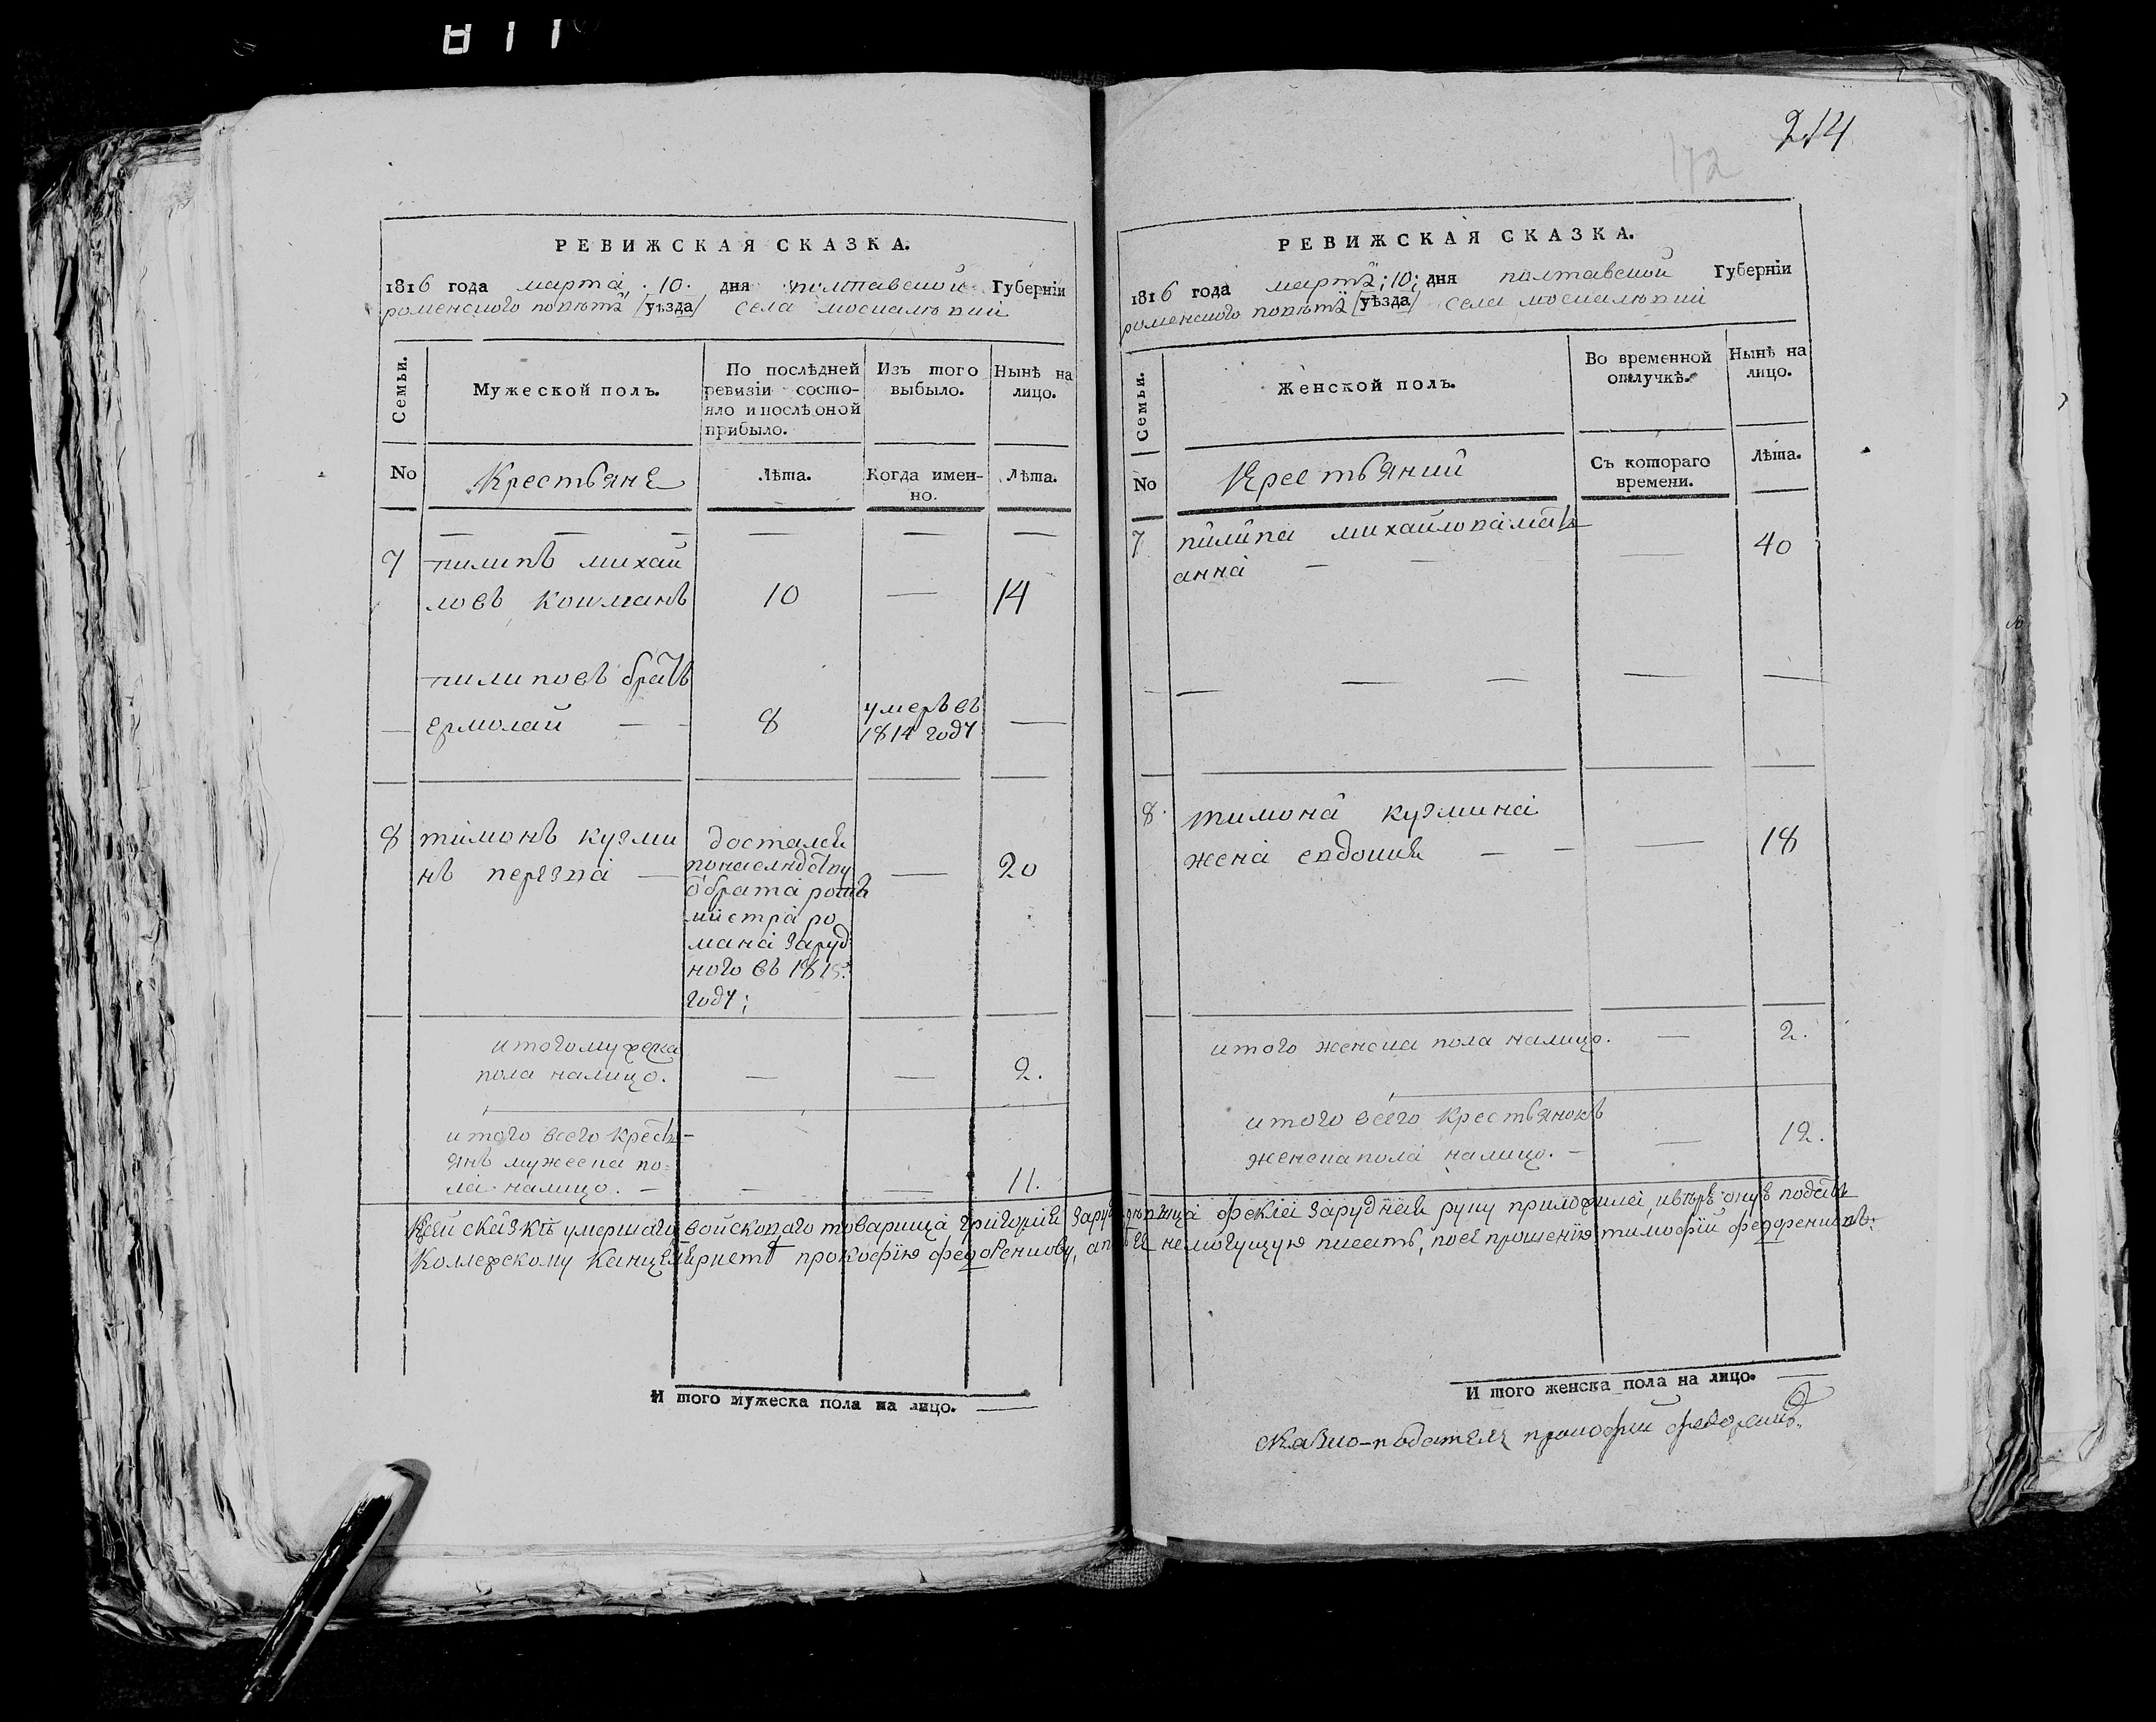 811
214
172
РЕВИЖСКАЯ СКАЗКА.
1816 года марта 10. дня полтавской Губерніи
роменского повѣта [уѣзда] села москалѣвки
Семьи.
Мужеской полъ.
По послѣдней ревизіи состо-
яло и послѣ оной
прибыло.
Изъ того
выбыло.
Нынѣ на
лицо.
No
Крестьяне
Лѣта.
Когда имен-
но.
Лѣта.
7 пилипъ михай
ловъ кошманъ 10 — 14
пилиповъ братъ
— ермолай — 8 умеръ въ —
1814 году
8 тимонъ кузми
нъ — 20
достался
по наследству
о брата рот
мистра ро
мана заруд
ного въ 1815.
году;
итого мужеска
пола налицо. — — 2.
итого всего кресть-
янъ мужеска по-
ла налицо. — — — 11.
И того мужеска пола на лицо. —
РЕВИЖСКАЯ СКАЗКА.
1816 года марта; 10; дня полтавской Губерніи
роменского повѣта [уѣзда] села москалѣвки
Семьи.
Женской полъ.
Во временной
отлучкѣ.
Нынѣ на
лицо.
No
Крестьянки
Съ котораго
времени.
Лѣта.
7 пилипа михайлова мать
анна — — — 40
8. тимона кузмина
жена евдокия — — — 18
итого женска пола налицо. — 2.
итого всего крестьянокъ
женска пола налицо. — — 12.
И того женска пола на лицо. —
Ксей скаскѣ умершаго войскового товарища григория зарудного фекла зарудная руку приложила, ивѣрѣ оную подать
Коллежскому Канцеляристѣ прокофію федоренкову, а немогущую писать, по ея прошенію тимофій федоренковъ.
сказко-податель прокофий федоренко